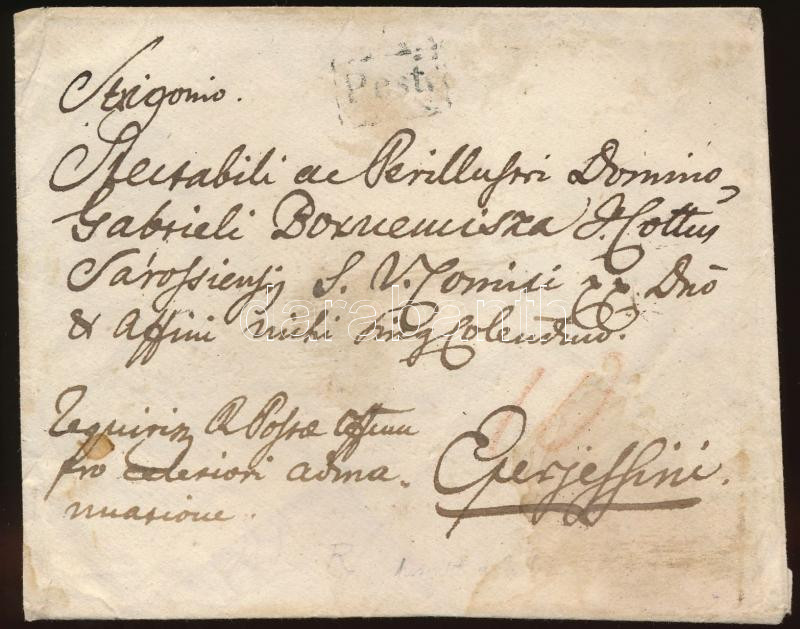 Strigonio.
Pesth
Spectabili ac Perillustri Domino
Gabrieli Bornemisza I. Cottus
Sárossiensis S. V. Comiti Dno
& Affini mihi sing Colendmo.
10
Requiritur R Postae Officium
pro celeriori adma-
nuatione.
Eperjessini.
darabanth
R